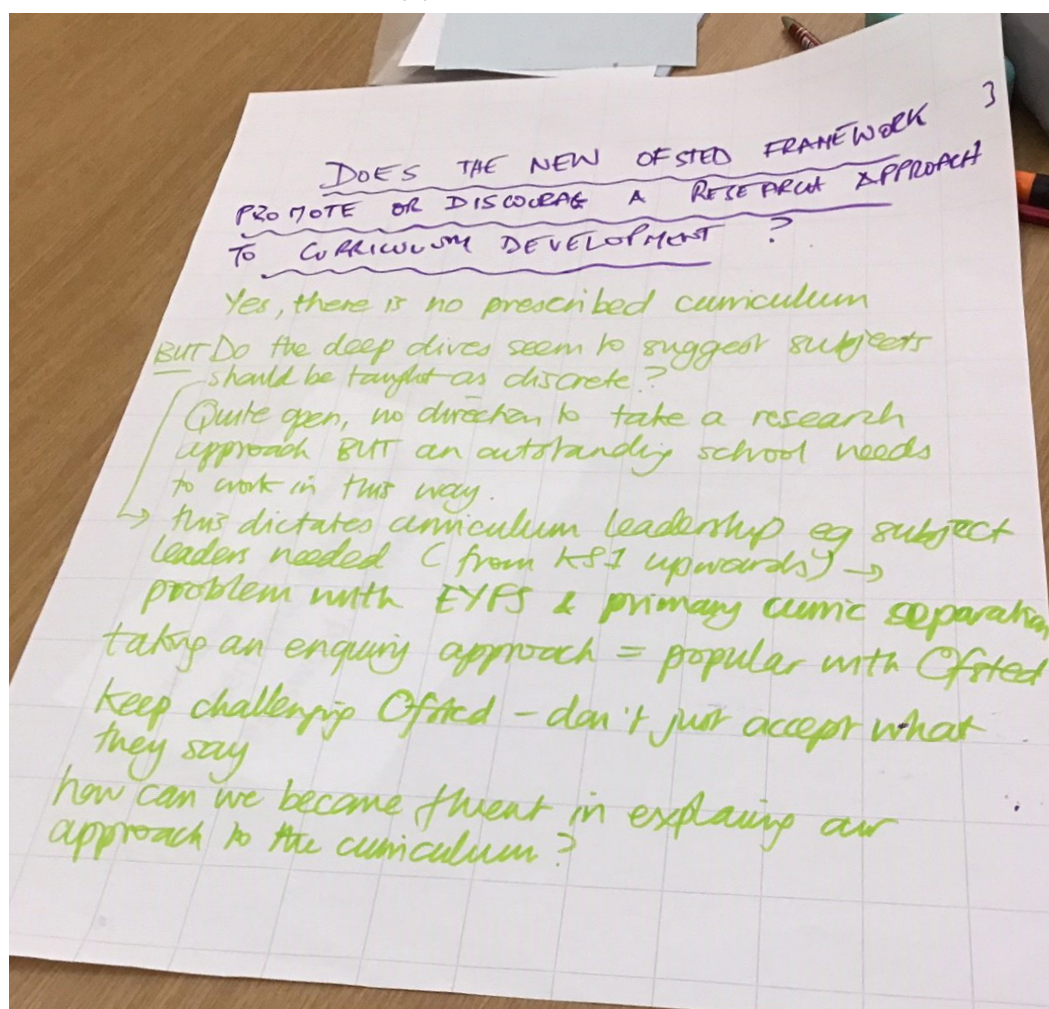 3
DOES THE NEW OFSTED FRAMEWORK
PROMOTE OR DISCOURAG A RESEARCH APPROACH
TO CURRICULUM DEVELOPMENT ?
Yes, there is no prescribed curriculum
BUT Do the deep dives seem to suggest subjects
should be taught as discrete?
Quite open, no direction to take a research
approach BUT an outstanding school needs
to work in this way.
↳ this dictates curriculum leadership eg subject
leaders needed (from KS1 upwards) →
problem with EYFS & primary curric separation
taking an enquiry approach = popular with Ofsted
keep challenging Ofsted - don't just accept what
they say
how can we become fluent in explaining our
approach to the curriculum?